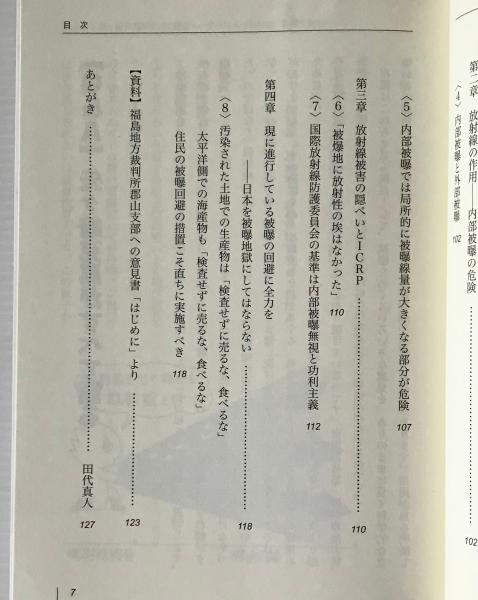 第二章　放射線の作用――内部被曝の危険……102
〈4〉内部被曝と外部被曝　102
目　次
〈5〉内部被曝では局所的に被曝線量が大きくなる部分が危険　107
第三章　放射線被害の隠ぺいとＩＣＲＰ……110
〈6〉「被爆地に放射性の埃はなかった」　110
〈7〉国際放射線防護委員会の基準は内部被曝無視と功利主義　112
第四章　現に進行している被曝の回避に全力を
――日本を被曝地獄にしてはならない……118
〈8〉汚染された土地での生産物は「検査せずに売るな、食べるな」
太平洋側での海産物も「検査せずに売るな、食べるな」
住民の被曝回避の措置こそ直ちに実施すべき　118
【資料】福島地方裁判所郡山支部への意見書「はじめに」より……123
あとがき……田代真人　127
7